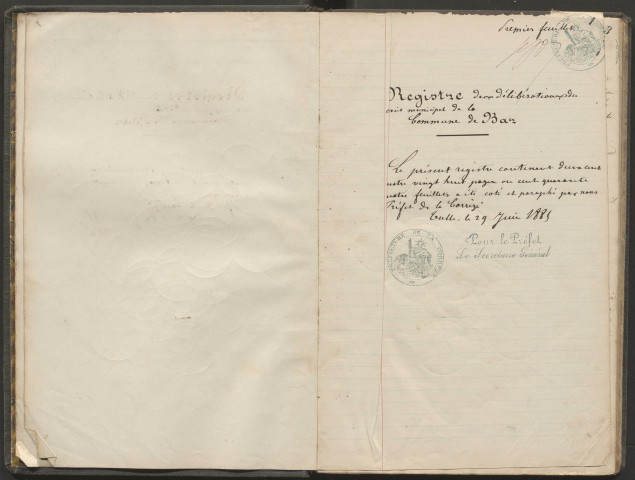 Premier feuillet 1
Registre des délibérations des
municipal de la
Commune de Bar
Le présent registre contenant deux cent
vingt huit pages ou cent quarante
feuillets a été coté et paraphé par nous
Préfet de la Corrèze
Tulle, le 29 Juin 1885
PRÉFECTURE DE LA CORRÈZE
Pour le Préfet
Le Secrétaire Général